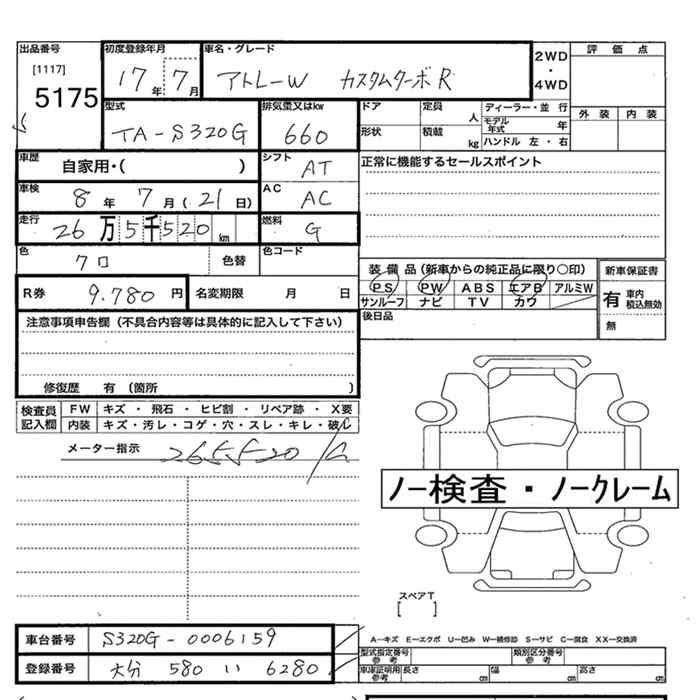 出品番号 初度登録年月 車名・グレード 2WD ・ 4WD 評価点
[1117]
5175 17年 7月 アトレーW カスタムターボR 外装 内装
型式 排気量又はkw ドア 定員 人 ディーラー・並行
TA-S320G 660 モデル年式 年
形状 積載 kg ハンドル 左・右
車歴 自家用・( ) シフト AT 正常に機能するセールスポイント
車検 8年 7月(21日) AC AC
走行 26万5千520km 燃料 G
色 クロ 色替 色コード
装備品(新車からの純正品に限り○印) 新車保証書
PS PW ABS エアB アルミW 有 車内 積込無効
サンルーフ ナビ TV カワ
R券 9.780円 名変期限 月 日 後日品 無
注意事項申告欄(不具合内容等は具体的に記入して下さい)
修復歴 有(箇所 )
検査員記入欄 FW キズ・飛石・ヒビ割・リペア跡・X要
内装 キズ・汚レ・コゲ・穴・スレ・キレ・破レ
メーター指示 265520
ノー検査・ノークレーム
スペアT
[ ]
車台番号 S320G-0006159
A－キズ E－エクボ U－凹み W－補修跡 S－サビ C－腐食 XX－交換済
型式指定番号 参考 類別区分番号 参考
登録番号 大分 580 い 6280
車庫証明用 参考 長さ cm 幅 cm 高さ cm